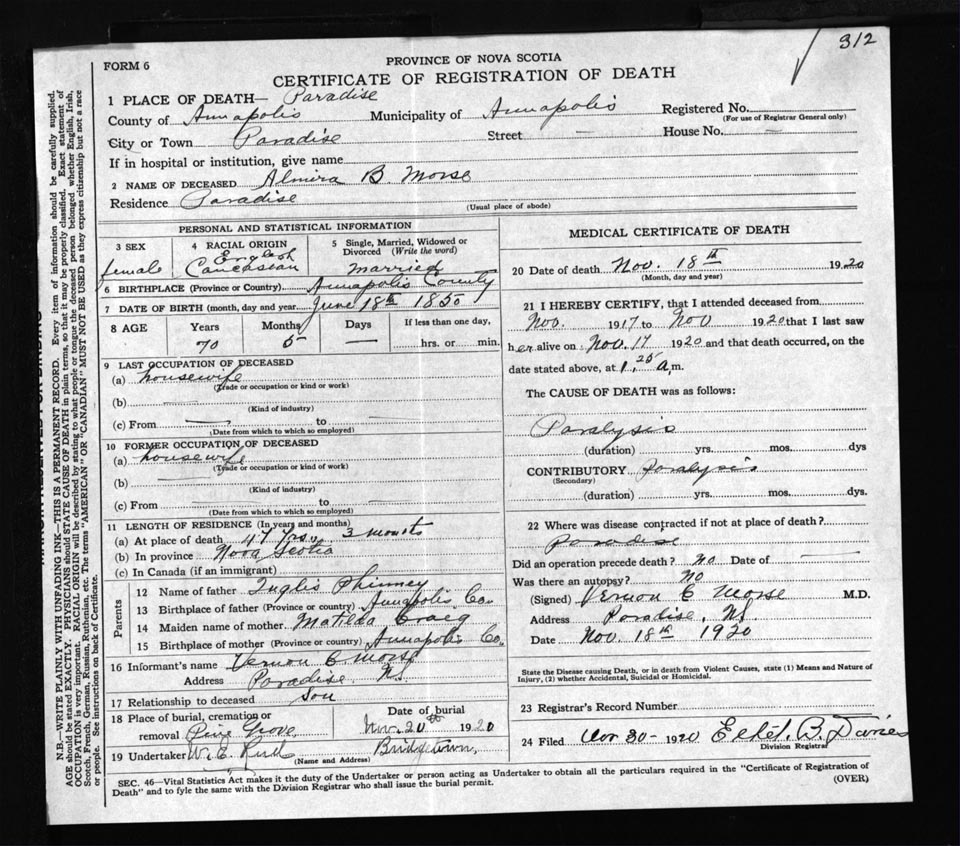 312
FORM 6
PROVINCE OF NOVA SCOTIA
CERTIFICATE OF REGISTRATION OF DEATH
1 PLACE OF DEATH— Paradise
County of Annapolis Municipality of Annapolis Registered No.
(For use of Registrar General only)
City or Town Paradise Street — House No. —
If in hospital or institution, give name
2 NAME OF DECEASED Almira B. Morse
Residence Paradise
(Usual place of abode)
PERSONAL AND STATISTICAL INFORMATION
3 SEX 4 RACIAL ORIGIN 5 Single, Married, Widowed or Divorced (Write the word)
English
female Caucasean married
6 BIRTHPLACE (Province or Country) Annapolis County
7 DATE OF BIRTH (month, day and year June 18th 1850
8 AGE Years Months Days If less than one day,
70 5 — hrs. or min.
9 LAST OCCUPATION OF DECEASED
(a) housewife
(Trade or occupation or kind or work)
(b) —
(Kind of industry)
(c) From — to —
(Date from which to which so employed)
10 FORMER OCCUPATION OF DECEASED
(a) housewife
(Trade or occupation or kind or work)
(b) —
(Kind of industry)
(c) From — to —
(Date from which to which so employed)
11 LENGTH OF RESIDENCE (In years and months)
(a) At place of death 47 yrs. 3 months
(b) In province Nova Scotia
(c) In Canada (if an immigrant)
Parents
12 Name of father Inglis Phinney
13 Birthplace of father (Province or country) Annapolis Co.
14 Maiden name of mother Matilda Craig
15 Birthplace of mother (Province or country) Annapolis Co.
16 Informant's name Vernon C. Morse
Address Paradise, N.
17 Relationship to deceased son
18 Place of burial, cremation or Date of burial
removal Pine Grove Nov. 20th 1920
19 Undertaker W. E. Bridgetown,
(Name and Address)
MEDICAL CERTIFICATE OF DEATH
20 Date of death Nov. 18th 1920
(Month, day and year)
21 I HEREBY CERTIFY, that I attended deceased from
Nov. 1917 to Nov 1920 that I last saw
her alive on Nov. 17 1920 and that death occurred, on the
date stated above, at 1.25 a.m.
The CAUSE OF DEATH was as follows:
Paralysis
(duration) yrs. mos. dys
CONTRIBUTORY Paralysis
(Secondary)
(duration) yrs. mos. dys.
22 Where was disease contracted if not at place of death?
Paradise
Did an operation precede death? no Date of —
Was there an autopsy? no
(Signed) Vernon C Morse M.D.
Address Paradise, NS
Date Nov. 18th 1920
State the Disease causing Death, or in death from Violent Causes, state (1) Means and Nature of
Injury, (2) whether Accidental, Suicidal or Homicidal.
23 Registrar's Record Number
24 Filed Nov 30 - 1920 B. Davies
Division Registrar
SEC. 46—Vital Statistics Act makes it the duty of the Undertaker or person acting as Undertaker to obtain all the particulars required in the "Certificate of Registration of
Death" and to fyle the same with the Division Registrar who shall issue the burial permit.
(OVER)
N.B.—WRITE PLAINLY WITH UNFADING INK—THIS IS A PERMANENT RECORD. Every item of information should be carefully supplied.
AGE should be stated EXACTLY. PHYSICIANS should STATE CAUSE OF DEATH in plain terms, so that it may be properly classified. Exact statement of
OCCUPATION is very important. RACIAL ORIGIN will be described by stating to what people or tongue the deceased person belonged whether English, Irish,
Scotch, French, German, Russian, Ruthenian, etc. The terms "AMERICAN" OR "CANADIAN" MUST NOT BE USED as they express citizenship but not a race
or people. See instructions on back of Certificate.